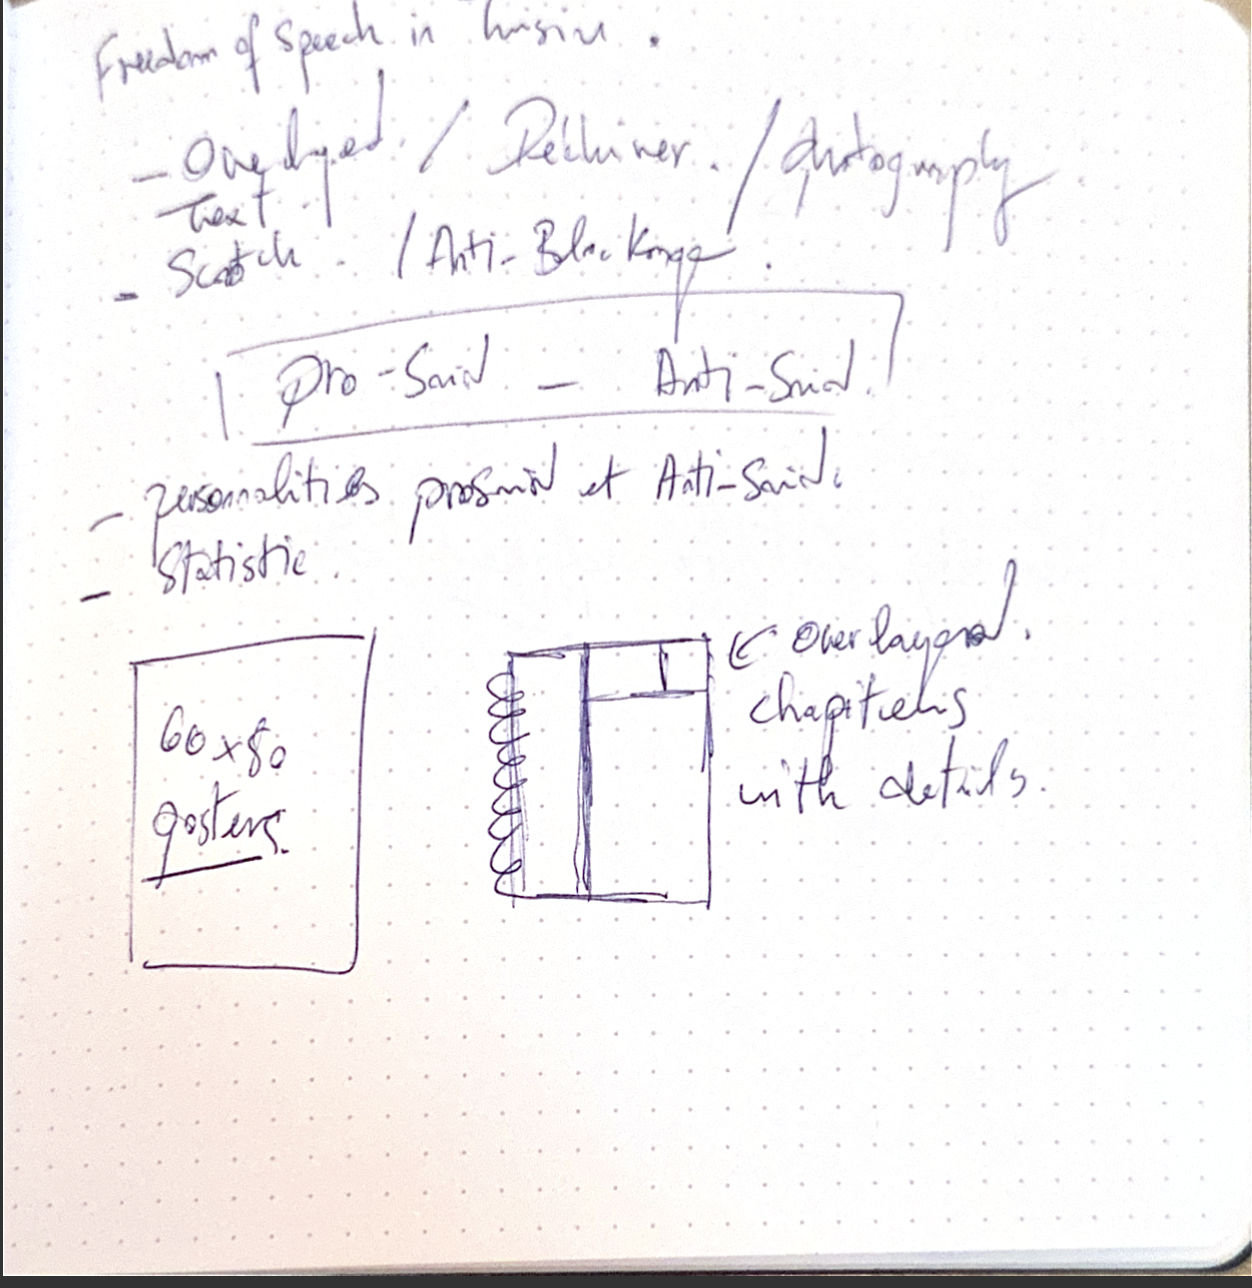 Freedom of Speech in Tunisia.
- Overlayed / Déchirer. / photography
Text
- Scotch. / Anti-
Pro-Said - Anti-Said.
- personnalities prosaid et Anti-Said.
- Statistic.
60x80
posters.
← Overlayered.
with details.